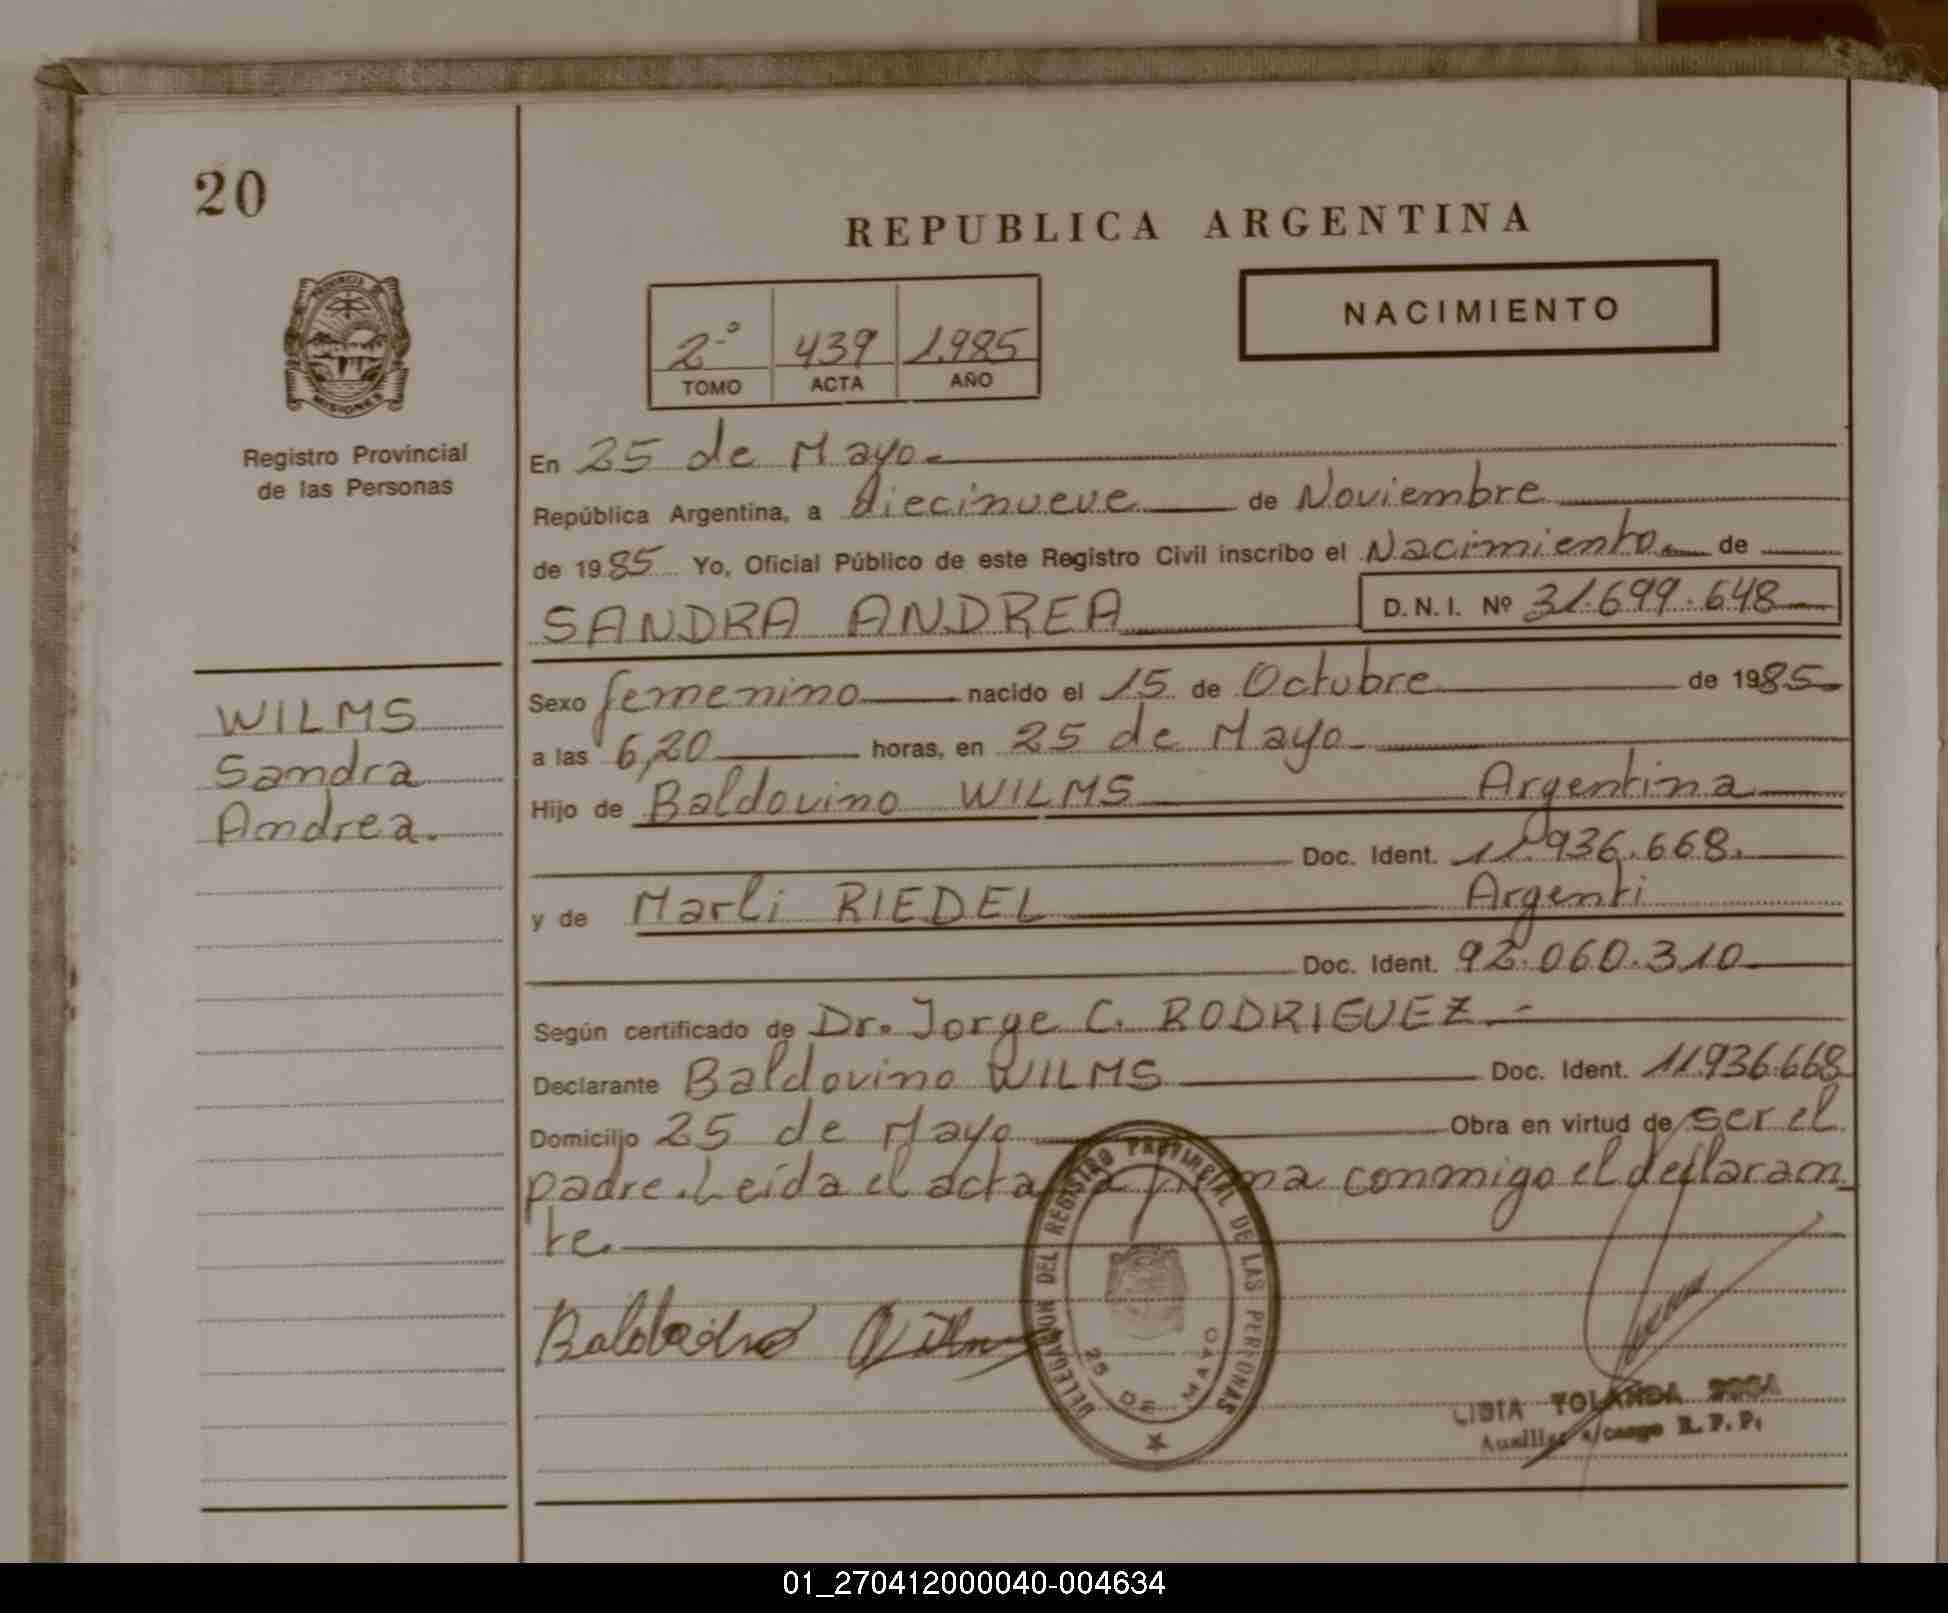 20
REPUBLICA ARGENTINA
PROVINCIA DE
MISIONES
Registro Provincial
de las Personas
2º 439 1.985
TOMO ACTA AÑO
NACIMIENTO
En 25 de Mayo.-
República Argentina, a diecinueve de Noviembre
de 1985 Yo, Oficial Público de este Registro Civil inscribo el Nacimiento de
SANDRA ANDREA D.N.I. Nº 31.699.648
WILMS
Sandra
Andrea.
Sexo femenino nacido el 15 de Octubre de 1985
a las 6,20 horas, en 25 de Mayo
Hijo de Baldovino WILMS Argentina
Doc. Ident. 11.936.668.
y de Marli RIEDEL Argenti
Doc. Ident. 92.060.310
Según certificado de Dr. Jorge C. RODRIGUEZ.-
Declarante Baldovino WILMS Doc. Ident. 11.936.668
Domicilio 25 de Mayo Obra en virtud de ser el
padre. Leída el acta la firma conmigo el declaran
te.
DELEGACION DEL REGISTRO PROVINCIAL DE LAS PERSONAS
25 DE MAYO
LIDIA YOLANDA SOSA
Auxiliar a/cargo R.P.P.
01_270412000040-004634